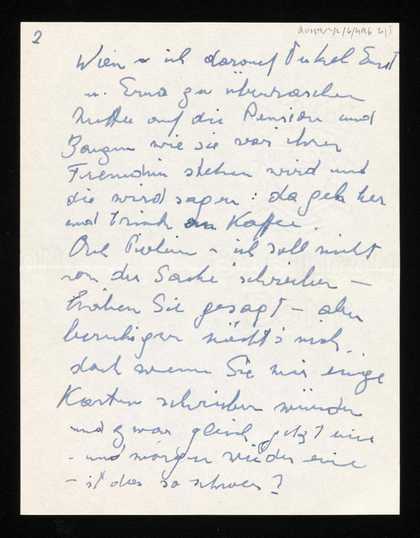 2
Wien u ich darauf Onkel Ernst
u. Erna zu überraschen
Kaffee auf die Pension und
wie sie vor ihrer
Freundin stehen wird und
die wird sagen: da geh her
und trink an Kaffee.
ich soll nicht
von der Sache schreiben –
haben Sie gesagt – aber
beruhigen möcht's mich,
daß wenn Sie mir einige
Karten schreiben würden
und zwar gleich, jetzt eine
– und morgen wieder eine
– ist das so schwer?